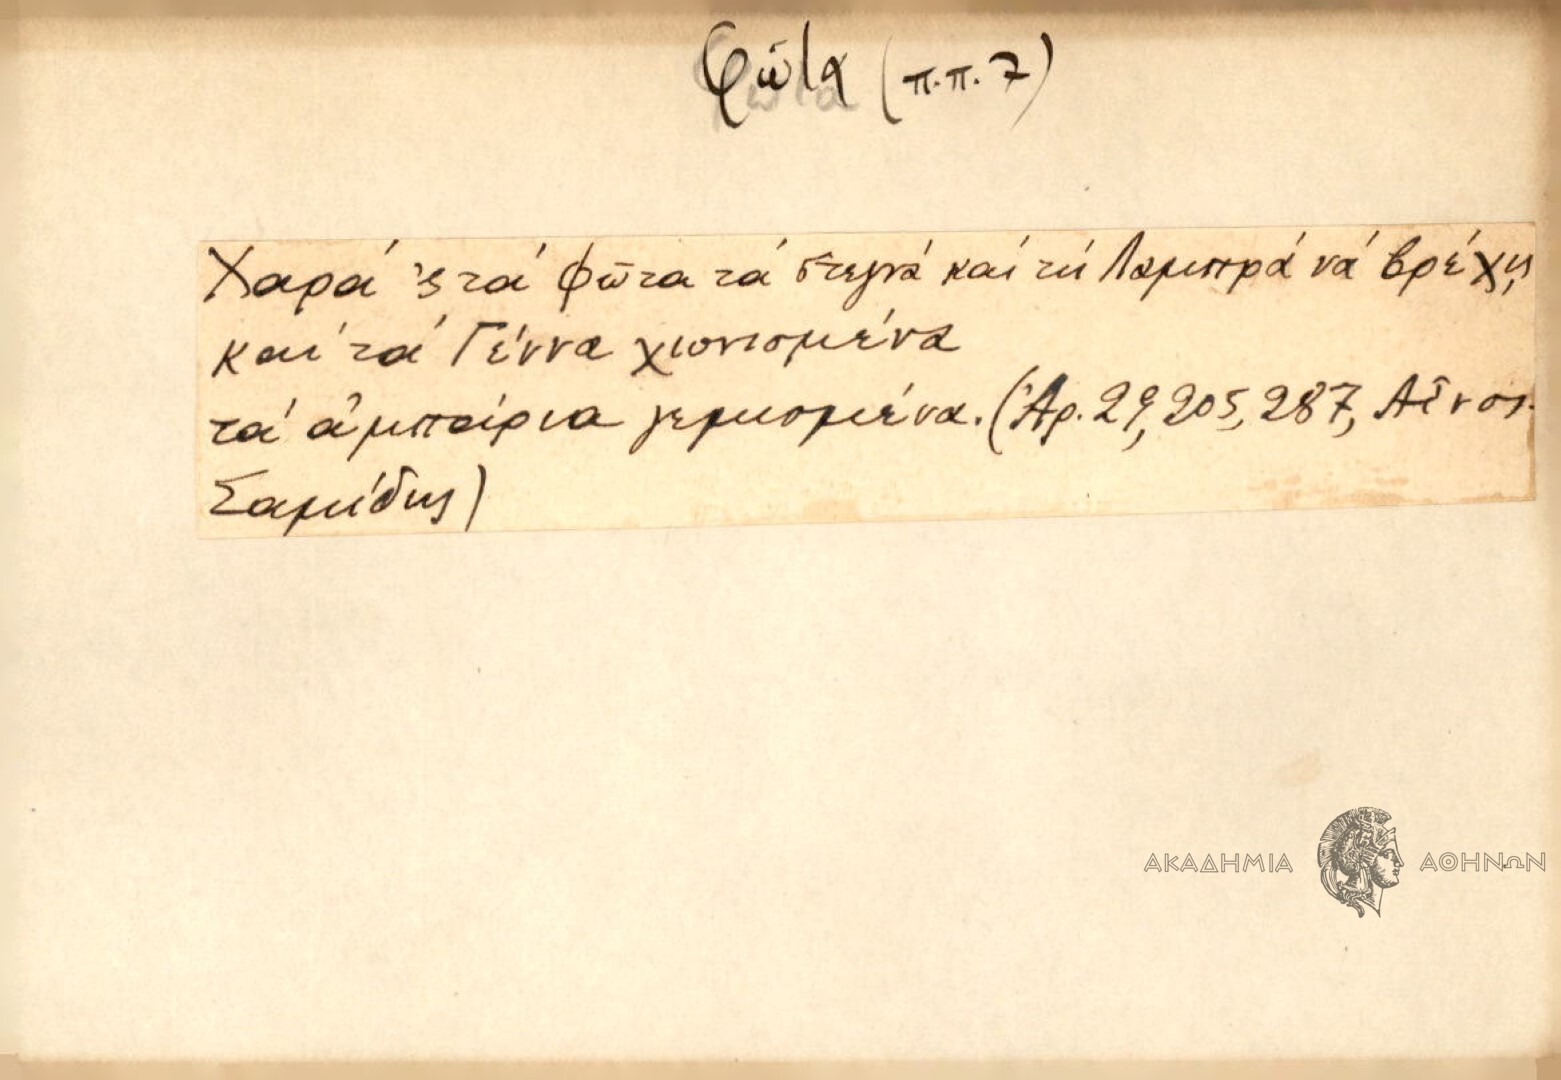 Φῶτα (π.π. 7)
Χαρά 'ς τά Φῶτα τά στεγνά καί τή Λαμπρά νά βρέχῃ,
καί τά Γέννα χιονισμένα
τά ἀμπάρια γεμισμένα. (Ἀρ. 29, 205, 287, Αἶνος.
Σαμίδης)
ΑΚΑΔΗΜΙΑ ΑΘΗΝΩΝ